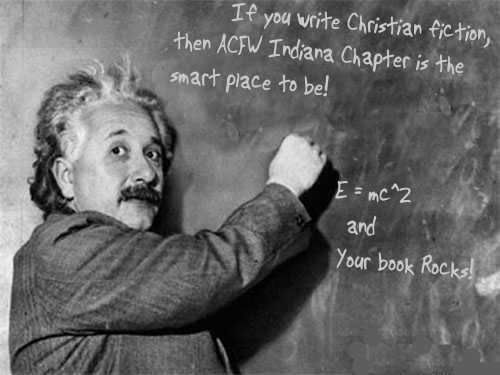 If you write Christian fiction,
then ACFW Indiana Chapter is the
smart place to be!
E = mc^2
and
Your book Rocks!